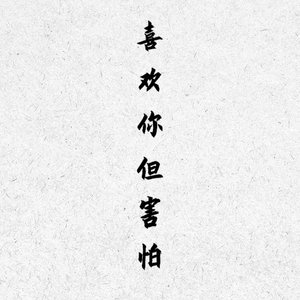 喜欢你但害怕